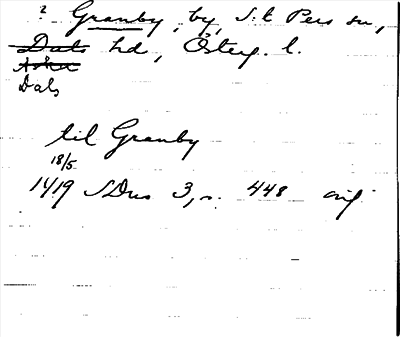 ? Granby, by, S:t Pers sn,
Dals hd, Österg. l.
Aska
Dals
til Granby
18/5
1419 SDns 3, s. 448 orig